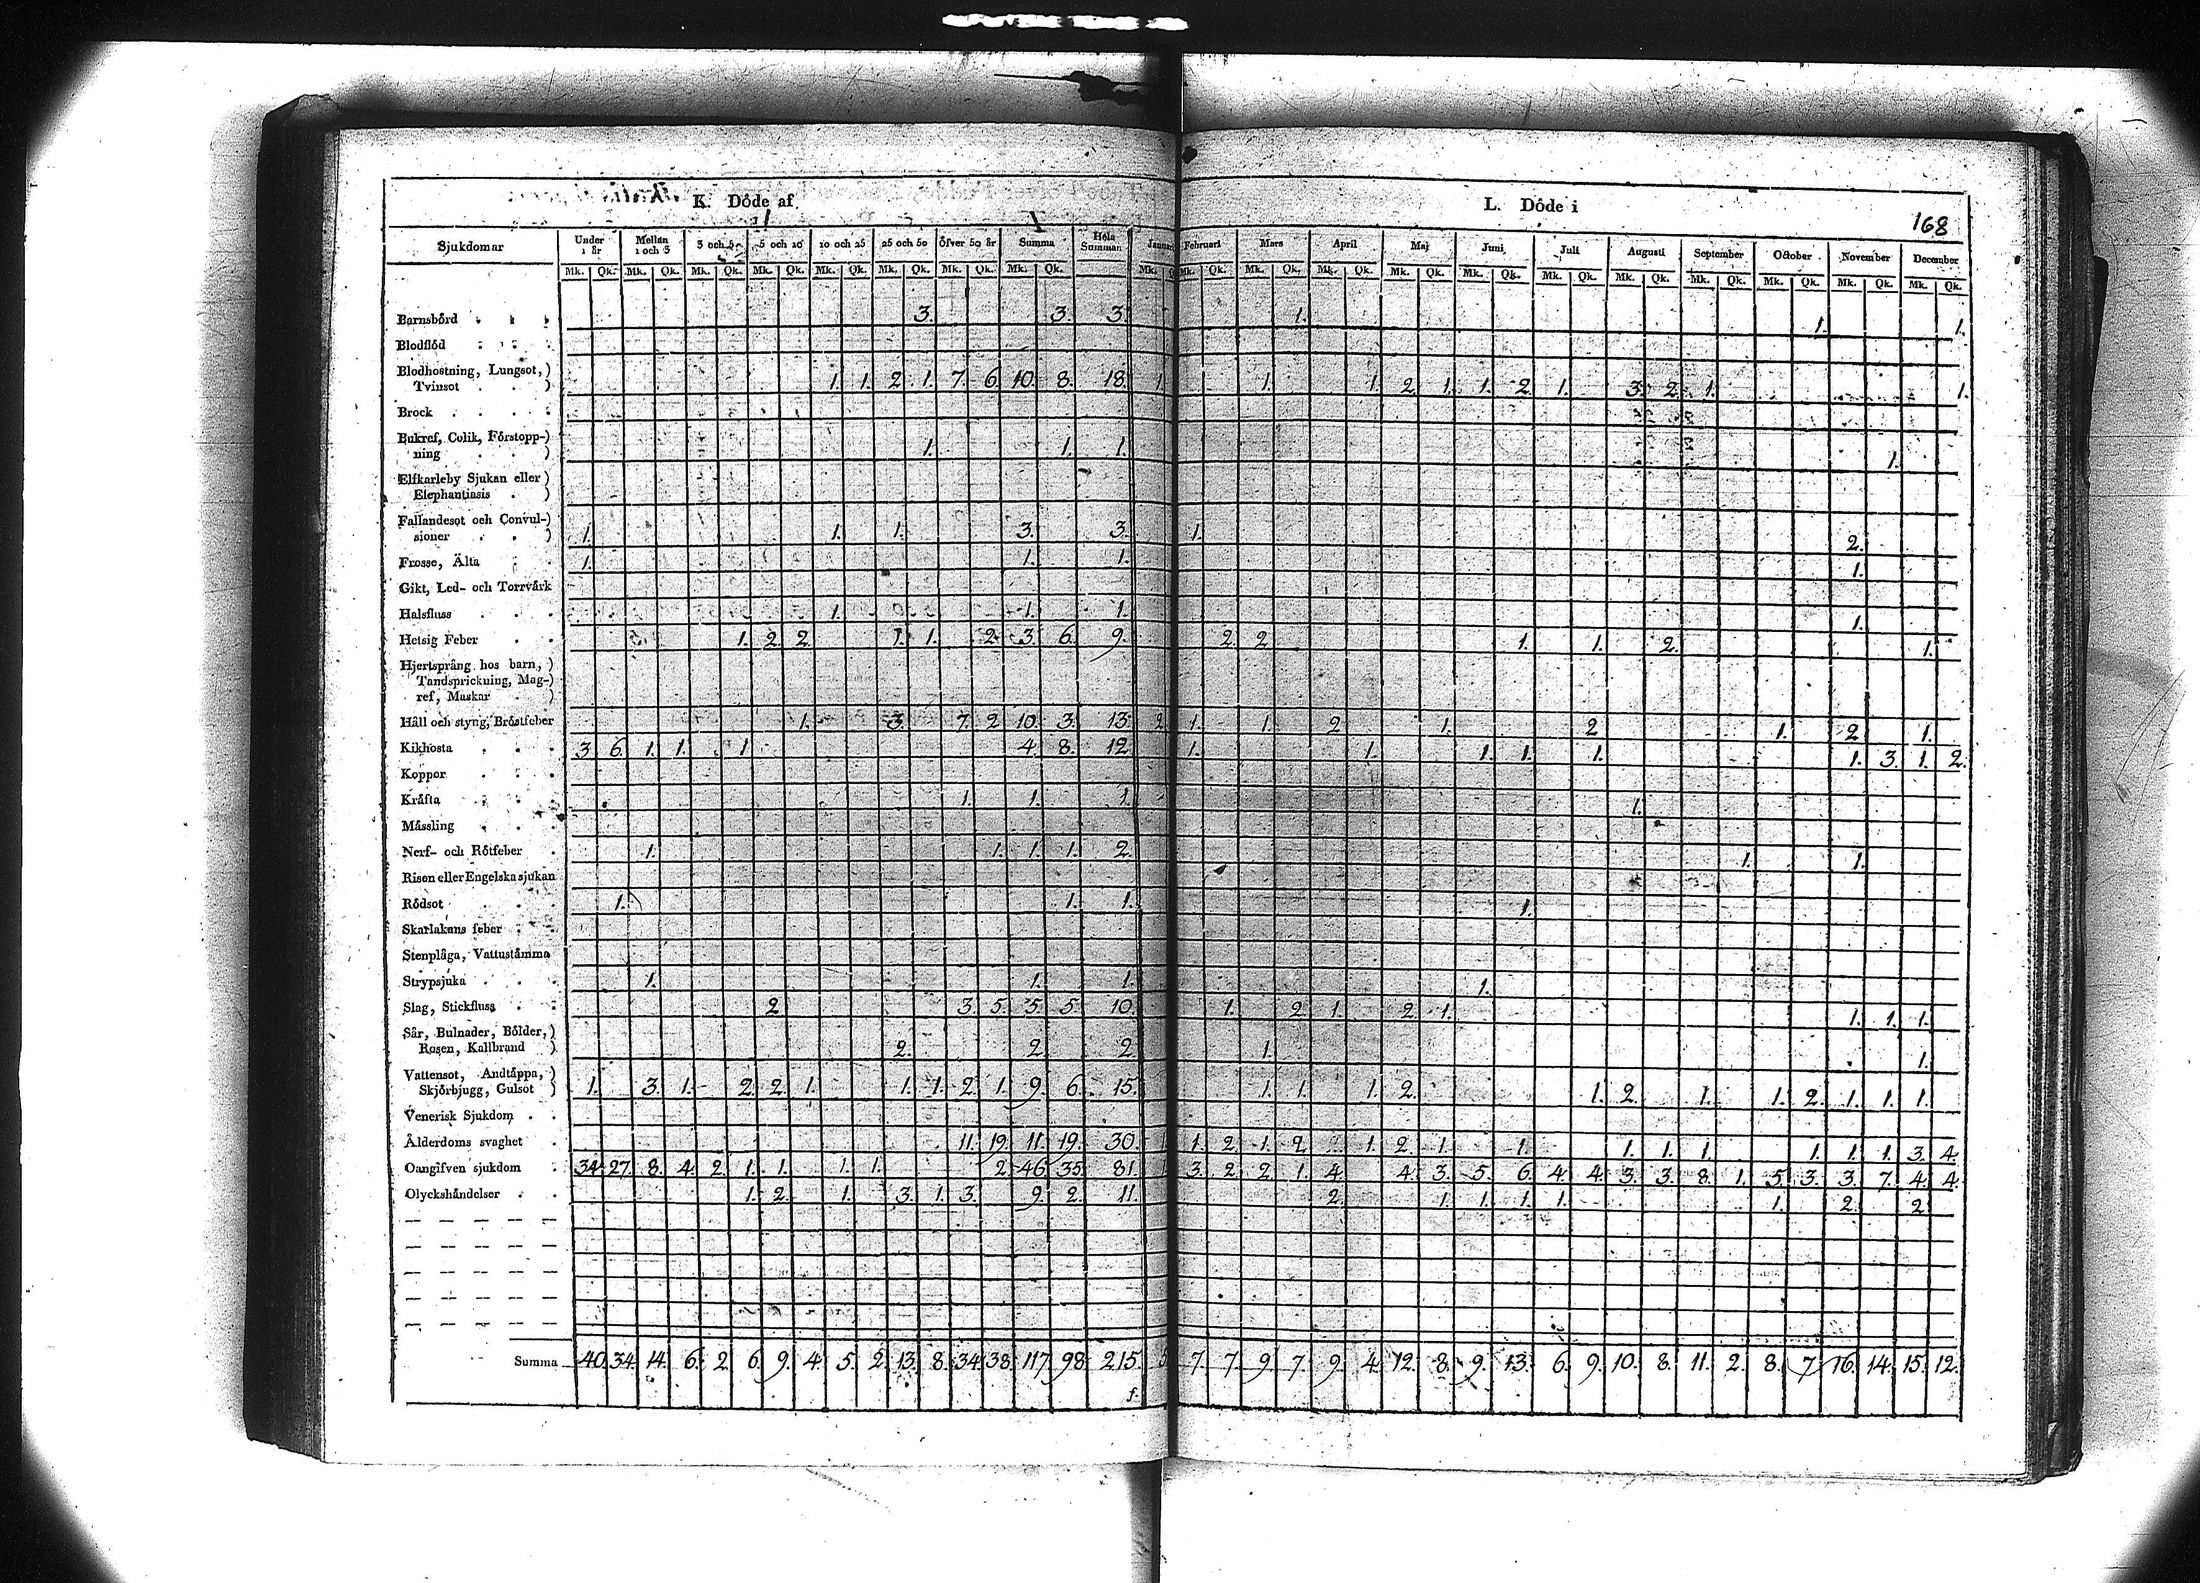 K. Döde af
L. Döde i
168
Sjukdomar Under 1 år Mellan 1 och 3 3 och 5 5 och 10 10 och 25 25 och 50 Öfver 50 år Summa Hela Summan Januari Februari Mars April Maj Juni Juli Augusti September October November December
Mk. Qk. Mk. Qk. Mk. Qk. Mk. Qk. Mk. Qk. Mk. Qk. Mk. Qk. Mk. Qk. Mk. Mk. Qk. Mk. Qk. Mk. Qk. Mk. Qk. Mk. Qk. Mk. Qk. Mk. Qk. Mk. Qk. Mk. Qk. Mk. Qk. Mk. Qk.
Barnsbörd 3. 3. 3. 1. 1. 1.
Blodflöd
Blodhostning, Lungsot, )
Tvinsot ) 1. 1. 2. 1. 7. 6. 10. 8. 18. 1. 1. 1. 2. 1. 1. 2. 1. 3. 2. 1. 1.
Brock
Bukref, Colik, Förstopp-)
ning ) 1. 1. 1. 1.
Elfkarleby Sjukan eller )
Elephantiasis )
Fallandesot och Convul-)
sioner ) 1. 1. 1. 3. 3. 1. 2.
Frosse, Älta 1. 1. 1. 1.
Gikt, Led- och Torrvärk
Halsfluss 1. 1. 1. 1.
Hetsig Feber 1. 2. 2. 1. 1. 2. 3. 6. 9. 2. 2. 1. 1. 2. 1.
Hjertsprång hos barn, )
Tandsprickning, Mag-)
ref, Maskar )
Håll och styng, Bröstfeber 1. 3. 7. 2. 10. 3. 13. 2. 1. 1. 2. 1. 2. 1. 2. 1.
Kikhosta 3. 6. 1. 1. 1. 4. 8. 12. 1. 1. 1. 1. 1. 1. 3. 1. 2.
Koppor
Kräfta 1. 1. 1. 1.
Mässling
Nerf- och Rötfeber 1. 1. 1. 1. 2. 1. 1.
Risen eller Engelska sjukan
Rödsot 1. 1. 1. 1.
Skarlakans feber
Stenplåga, Vattustämma
Strypsjuka 1. 1. 1. 1.
Slag, Stickfluss 2. 3. 5. 5. 5. 10. 1. 2. 1. 2. 1. 1. 1. 1.
Sår, Bulnader, Bölder, )
Rosen, Kallbrand ) 2. 2. 2. 1. 1.
Vattensot, Andtäppa, )
Skjörbjugg, Gulsot ) 1. 3. 1. 2. 2. 1. 1. 1. 2. 1. 9. 6. 15. 1. 1. 1. 2. 1. 2. 1. 1. 2. 1. 1. 1.
Venerisk Sjukdom
Ålderdoms svaghet 11. 19. 11. 19. 30. 1. 1. 2. 1. 2. 1. 2. 1. 1. 1. 1. 1. 1. 1. 1. 3. 4.
Oangifven sjukdom 34. 27. 8. 4. 2. 1. 1. 1. 1. 2. 46. 35. 81. 1. 3. 2. 2. 1. 4. 4. 3. 5. 6. 4. 4. 3. 3. 8. 1. 5. 3. 3. 7. 4. 4.
Olyckshändelser 1. 2. 1. 3. 1. 3. 9. 2. 11. 2. 1. 1. 1. 1. 1. 2. 2.
Summa 40. 34. 14. 6. 2. 6. 9. 4. 5. 2. 13. 8. 34. 38. 117. 98. 215. 7. 7. 9. 7. 9. 4. 12. 8. 9. 13. 6. 9. 10. 8. 11. 2. 8. 7. 16. 14. 15. 12.
f.